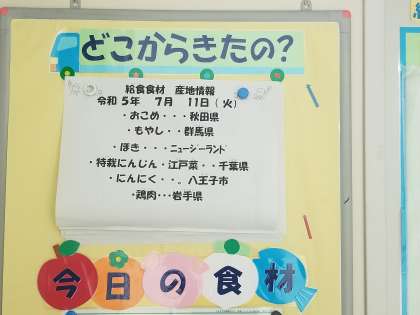 どこからきたの?
給食食材 産地情報
令和 5年 7月 11日(火)
・おこめ・・・秋田県
・もやし・・群馬県
・ほき・・・ニュージーランド
・特裁にんじん・江戸菜・・千葉県
・にんにく・・。八王子市
・鶏肉・・・岩手県
今日の食材